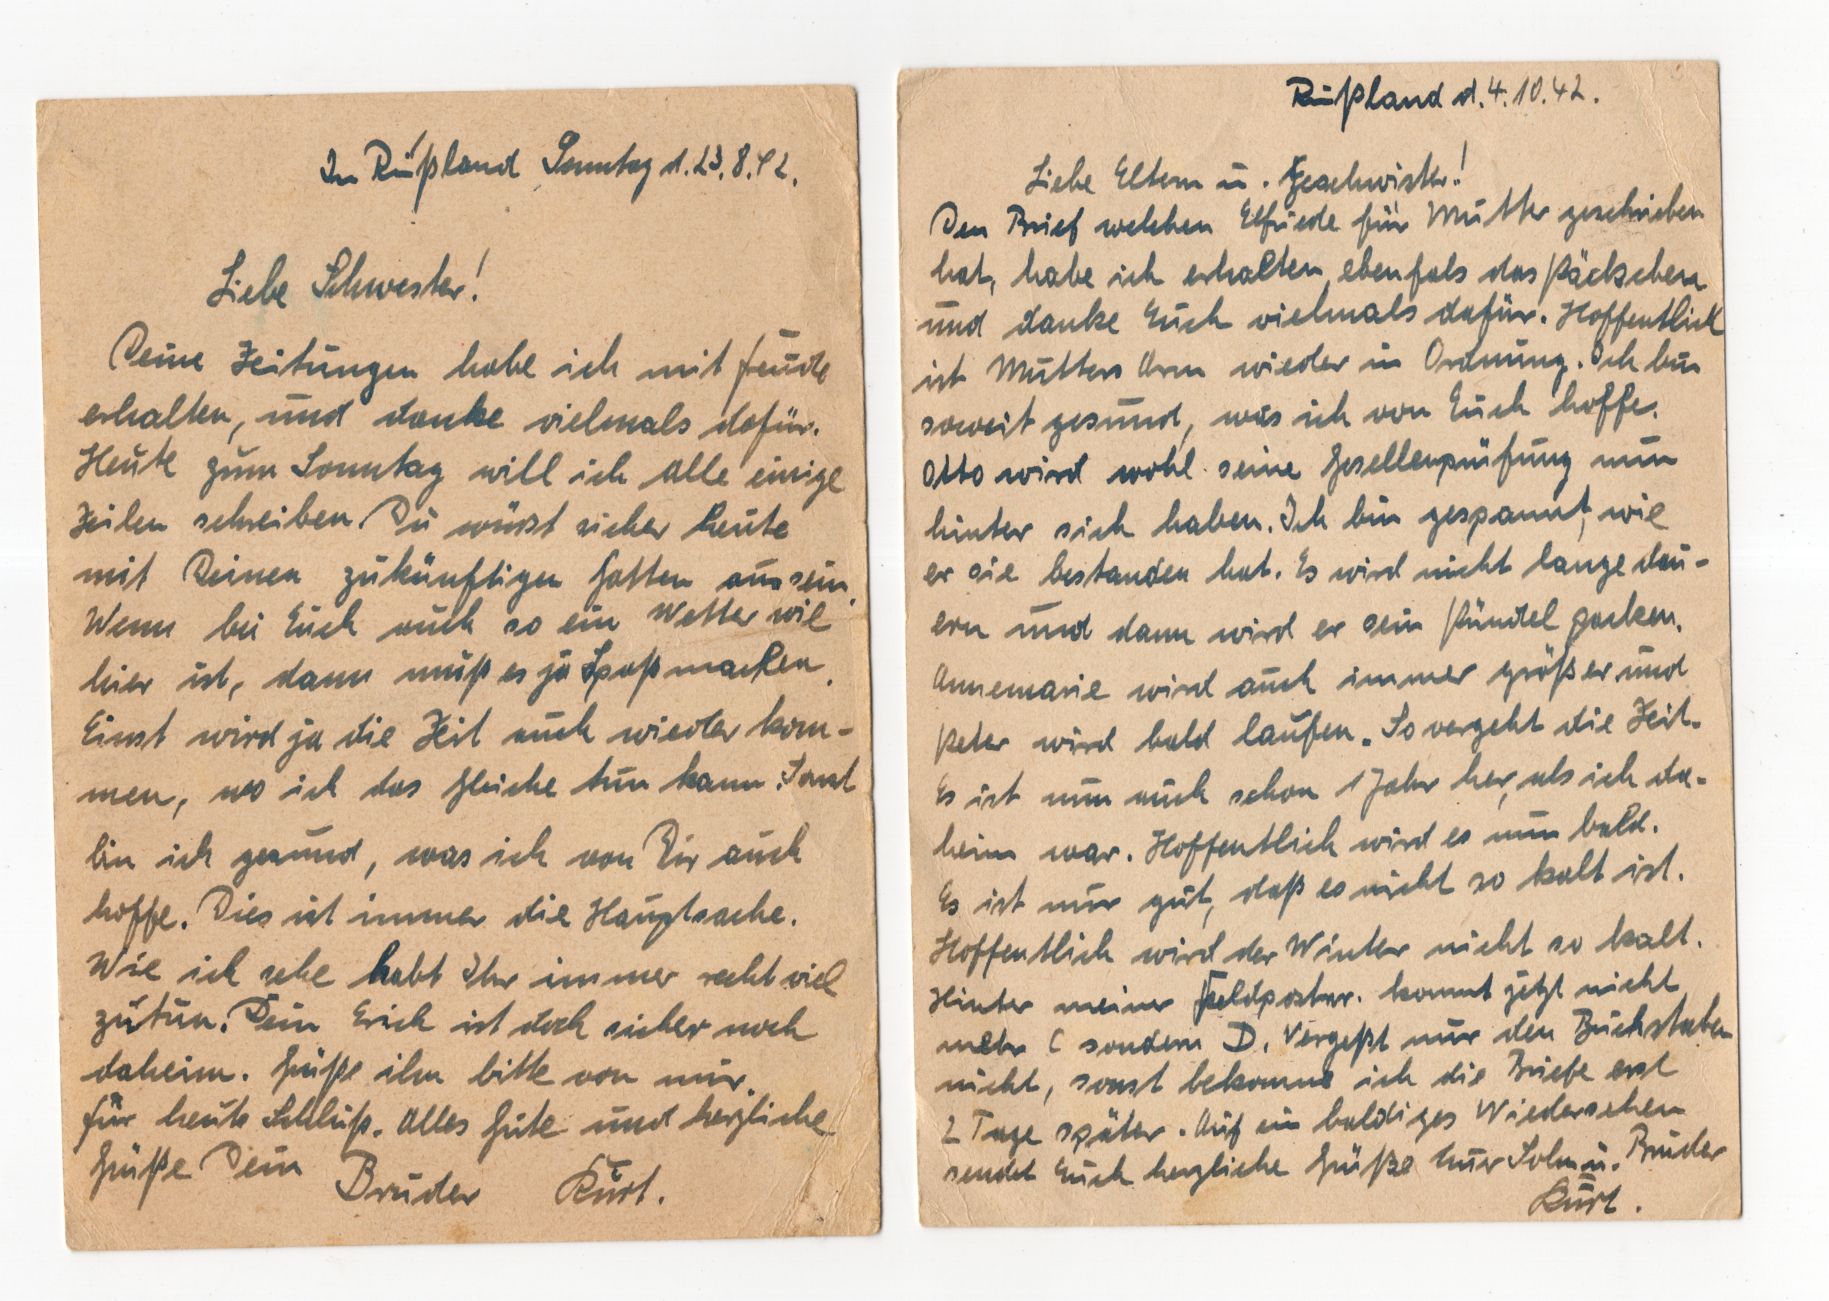 In Rußland Sonntag d. 23.8.42.
Liebe Schwester!
Deine Zeitungen habe ich mit Freude
erhalten, und danke vielmals dafür.
Heute zum Sonntag will ich alle einige
Zeilen schreiben. Du wirst sicher heute
mit Deinen zukünftigen Gatten aus sein.
Wenn bei Euch auch so ein Wetter wie
hier ist, dann muß es ja Spaß machen.
Einst wird ja die Zeit auch wieder kom-
men, wo ich das Gleiche tun kann. Sonst
bin ich gesund, was ich von Dir auch
hoffe. Dies ist immer die Hauptsache.
Wie ich sehe habt Ihr immer recht viel
zutun. Dein Erich ist doch sicher noch
daheim. Grüße ihn bitte von mir.
Für heute Schluß. Alles Gute und herzliche
Grüße Dein Bruder Kurt.
Rußland d. 4.10.42.
Liebe Eltern u. Geschwister!
Den Brief welchen Elfriede für Mutter geschrieben
hat, habe ich erhalten, ebenfals das Päckchen
und danke Euch vielmals dafür. Hoffentlich
ist Mutters Arm wieder in Ordnung. Ich bin
soweit gesund, was ich von Euch hoffe.
Otto wird wohl seine Gesellenprüfung nun
hinter sich haben. Ich bin gespannt, wie
er sie bestanden hat. Es wird nicht lange dau-
ern und dann wird er sein Bündel packen.
Annemarie wird auch immer größer und
Peter wird bald laufen. So vergeht die Zeit.
Es ist nun auch schon 1 Jahr her, als ich da-
heim war. Hoffentlich wird es nun bald.
Es ist nur gut, daß es nicht so kalt ist.
Hoffentlich wird der Winter nicht so kalt.
Hinter meiner Feldpostnr. kommt jetzt nicht
mehr C sondern D. Vergeßt nur den Buchstaben
nicht, sonst bekomme ich die Briefe erst
2 Tage später. Auf ein baldiges Wiedersehen
sendet Euch herzliche Grüße Euer Sohn u. Bruder
Kurt.